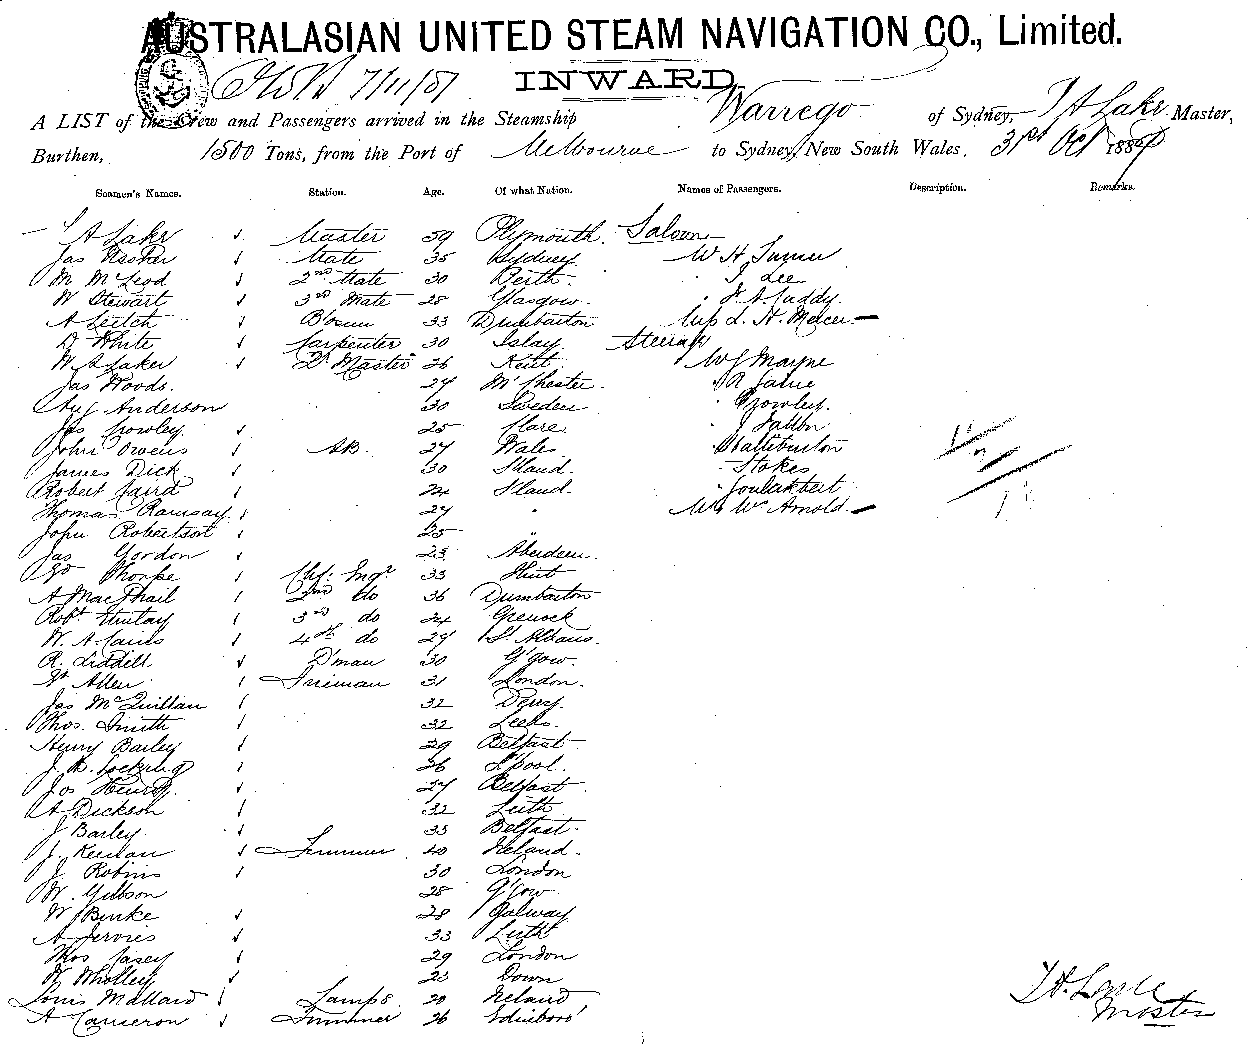 AUSTRALASIAN UNITED STEAM NAVIGATION CO., Limited.
7/11/87 INWARD
A LIST of the Crew and Passengers arrived in the Steamship Warrego of Sydney, Master,
Burthen, 1500 Tons, from the Port of Melbourne to Sydney, New South Wales, 31st Oct 1887
Seamen's Names. Station. Age. Of what Nation. Names of Passengers. Description. Remarks.
A Lake Master 59 Plymouth. Saloon
Jas Mate 35 Sydney W H Turner
M McLeod 2nd Mate 30 Perth J Lee
W Stewart 3rd Mate 28 Glasgow Cuddy
A Leitch B'osun 33 Dumbarton L. H. Mercer
D White Carpenter 30 Islay
W A Laker Master 26 Wayne
Jas Woods. 27 M'chester
Aug Anderson 30 Sweden Crowley.
Jas Crowley 25 Clare
John Owens AB. 27 Wales Haliburton
James Dick 30 Stokes
Robert Laird 24
Thomas Ramsay 27 " Arnold
John Robertson 25 "
Jas Gordon 23 Aberdeen.
Thorpe Chf: Engr 33
A MacPhail 2nd do 36 Dumbarton
Robt 3rd do 24 Greenock
W. A. 4th do 29 St Albans.
R. Liddell D'man 30 G'gow.
Allen Fireman 31 London.
Jas McQuillan 32 Derry
Thos. Smith 32 Leeds.
Henry Barley 29 Belfast
J. 26 L'pool.
Jos Henry 27 Belfast
A Dickson 32 Leith
J Barley 33 Belfast
J. Keenan Trimmer 40 Ireland.
J Robins 30 London
W. Gibson 28 G'gow
W Burke 28 Galway
A Jervies 33 Leith
Thos Casey 29 London
W Wholley 23 Down
Louis Mallard Lamps 20 Ireland
A Cameron Trimmer 26 Edinboro'
Master